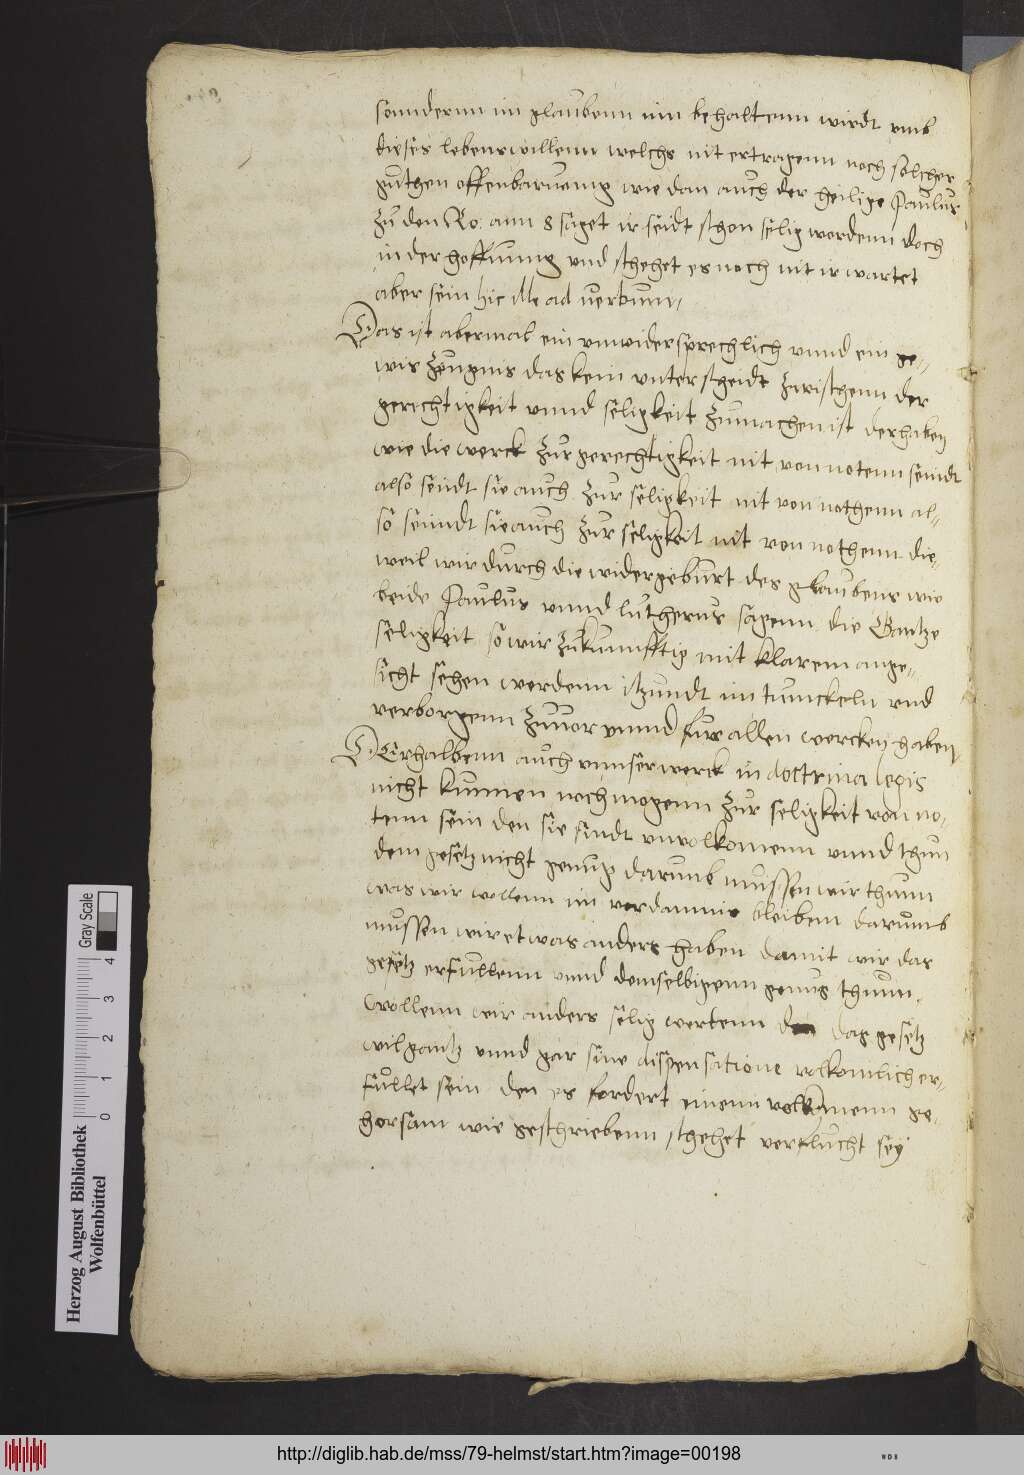 sonndernn im glaubenn nun behaltenn wirdt umb
dieses lebens willenn welchs nit ertragenn noch solcher
guthen offenbarunng wie dan auch der heilige Paulus
zu den Ro. ann 8 saget ir seidt schon selig wordenn doch
in der hoffnung und sthehet es noch nit ir wartet
aber sein hic ille ad verbum,
Das ist abermal ein unwidersprechlich unnd ein ge-
wis zeugnis das kein unterscheidt zwischenn der
gerichtigkeit unnd seligkeit zumachen ist derhaben
wie die werck zur gerechtigkeit nit von notenn seindt
also seindt sie auch zur seligkeit nit von nothenn al-
so seindt sie auch zur seligkeit nit von nothenn die-
weil wir durch die widergeburt des glaubens wie
beide Paulus unnd lutherus sagenn die Gantze
seligkeit so wir zukunnfftig mit klarem ange-
sicht sehen werdenn itzundt im tunckeln und
verborgenn zuuor unnd fur allen wercken haben
DErhalbenn auch unnser werck in doctrina legis
nicht kunnen noch mogenn zur seligkeit von no-
tenn sein den sie sindt unvolkomenn unnd thun
dem gesetz nicht genug darumb mussen wir thunn
was wir wollenn im verdamnis bleiben darumb
mussen wir etwas anders haben damit wir das
gesetz erfullenn unnd demselbigenn genug thunn,
Wollenn wir anders selig wertenn den das gesetz
wil gantz unnd gar sine dispensatione volkomlich er-
fullet sein den es fordert einenn volkomenn ge-
horsam wie geschriebenn sthehet verflucht sey
Herzog August Bibliothek
Wolfenbüttel
0 1 2 3 4
Gray Scale
http://diglib.hab.de/mss/79-helmst/start.htm?image=00198